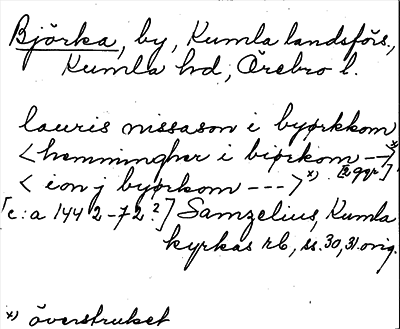 Björka, by, Kumla landsförs.,
Kumla hd, Örebro l.
lauris nissason i byørkkom
<hemmingher i biørkom --->x) [2 ggr]
< ion j byørkom --->x)
[c:a 1442-72?] Samzelius, Kumla
kyrkas rb, ss. 30, 31. orig.
x) överstruket